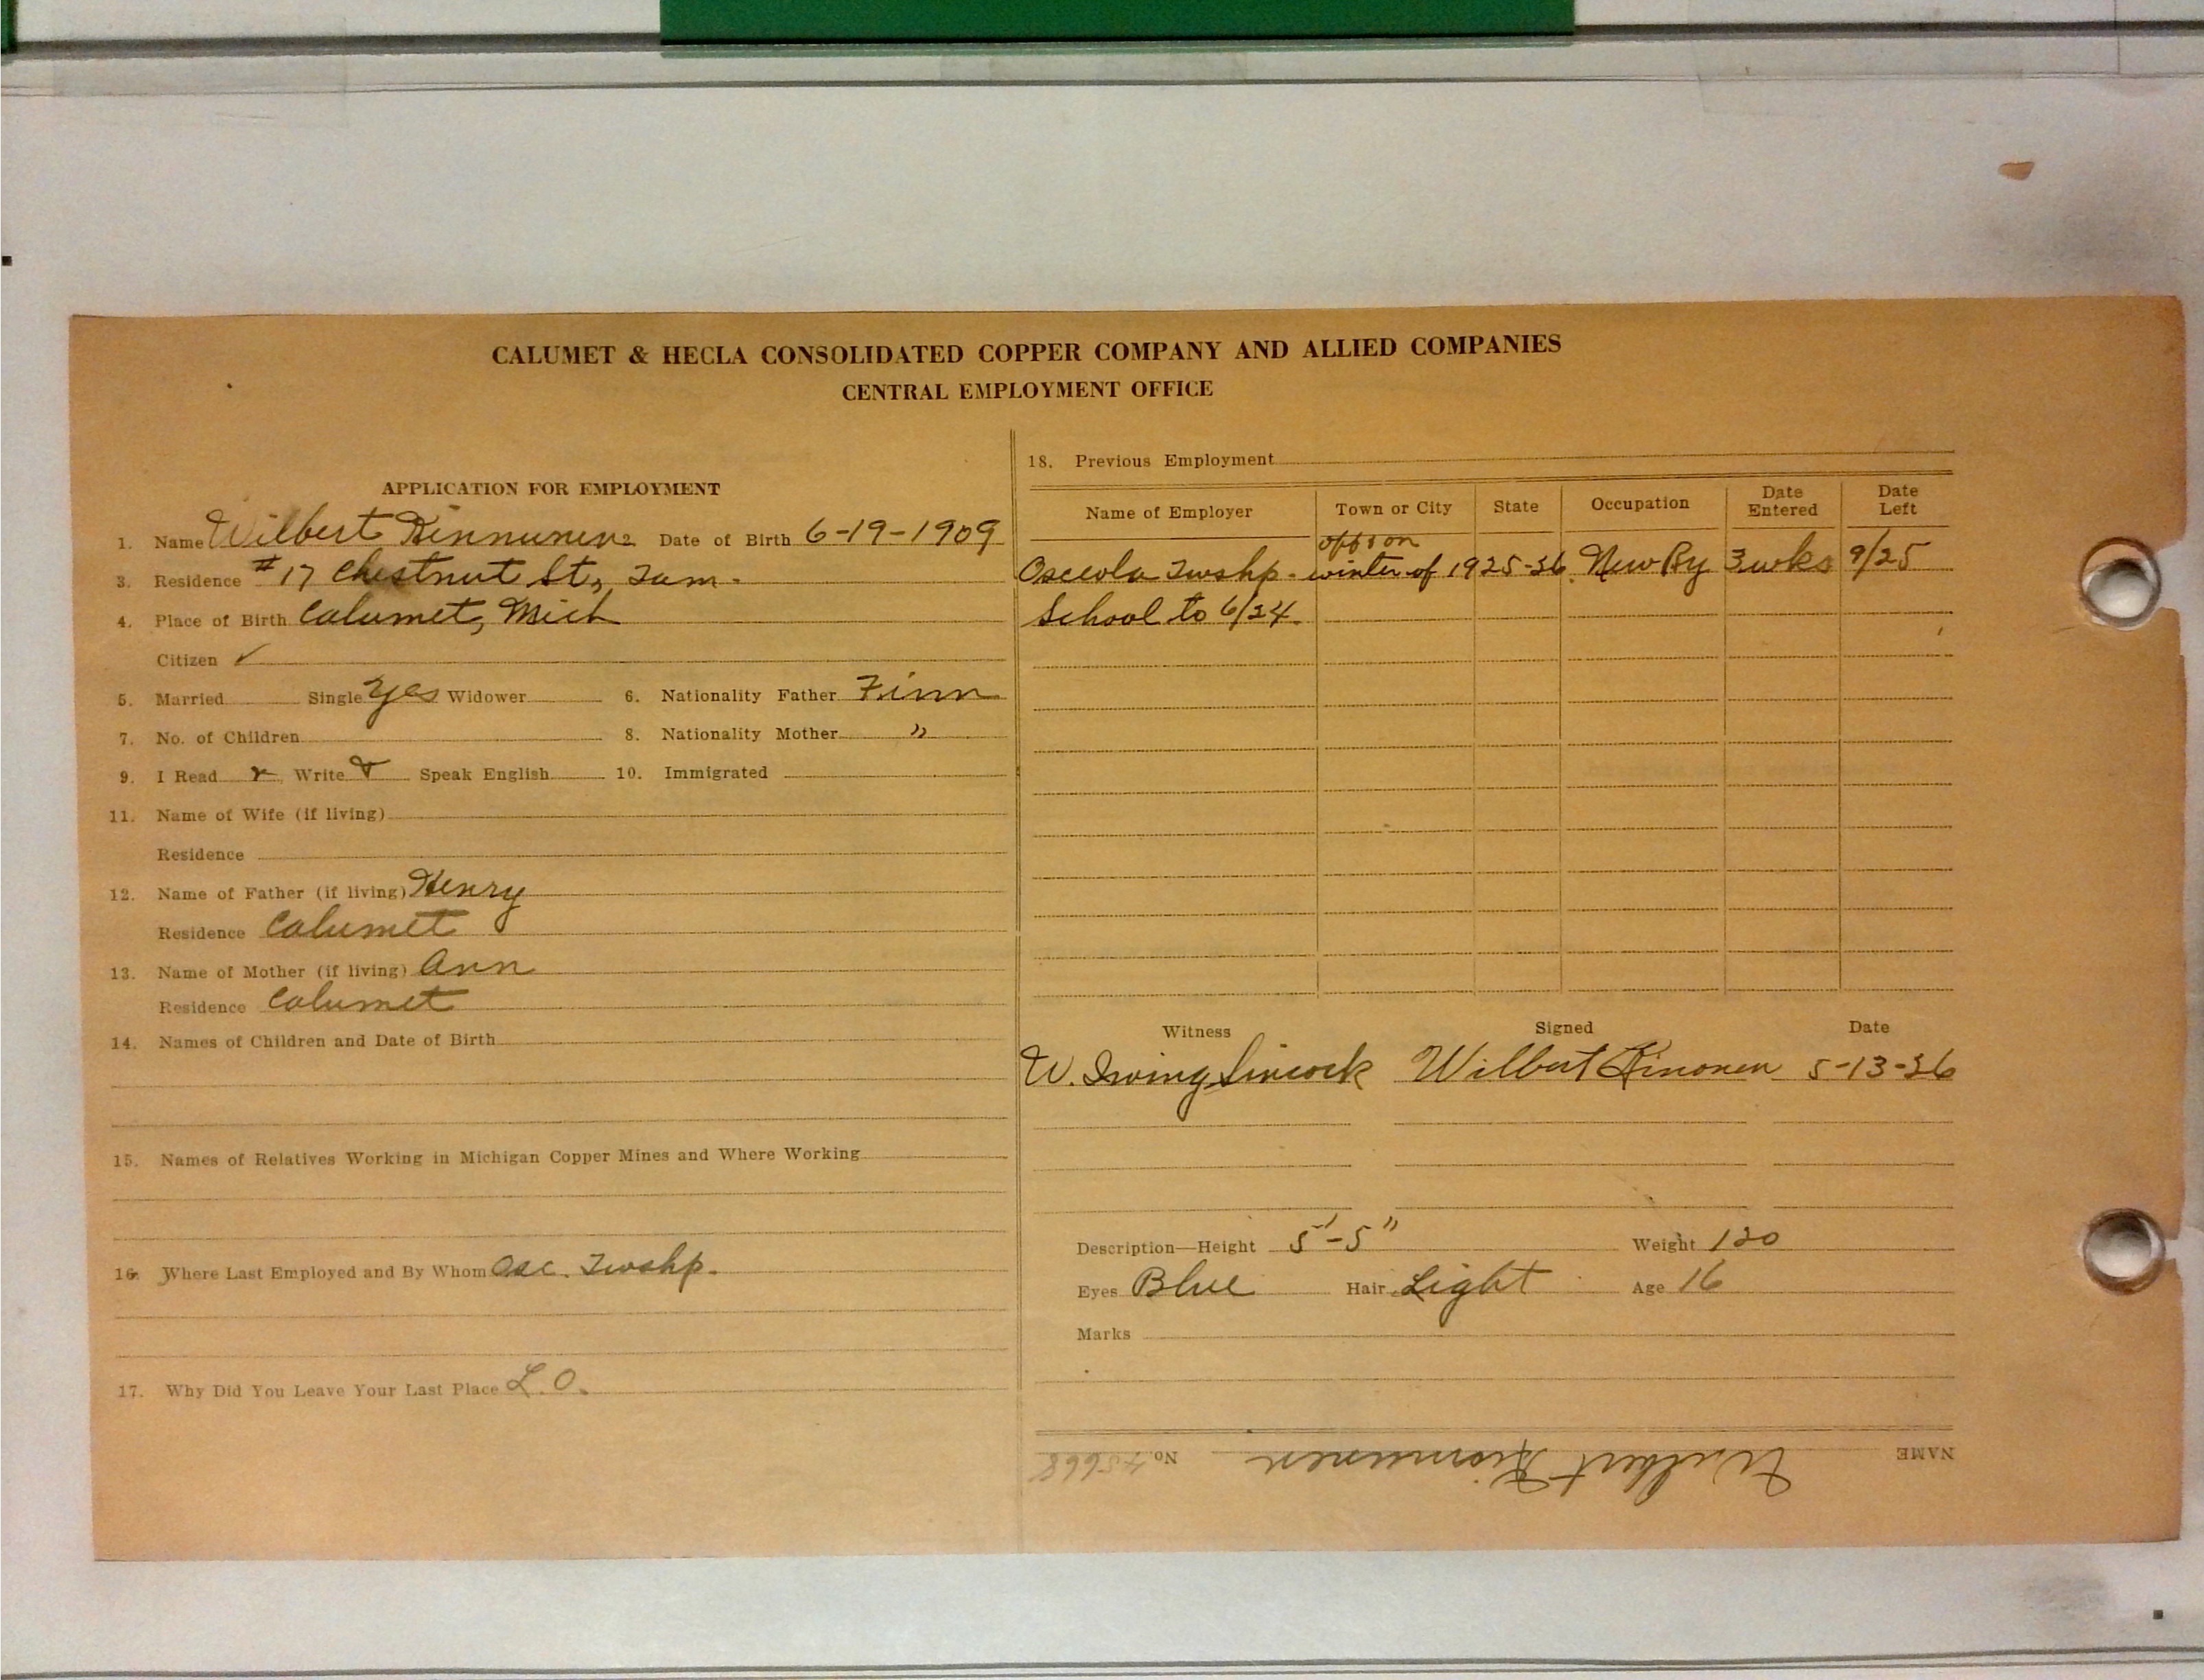 CALUMET & HECLA CONSOLIDATED COPPER COMPANY AND ALLIED COMPANIES
CENTRAL EMPLOYMENT OFFICE
APPLICATION FOR EMPLOYMENT
1. Name Wilbert Kinnunen 2 Date of Birth 6-19-1909
3. Residence #17 Chestnut St., Tam.
4. Place of Birth Calumet, Mich
Citizen ✓
5. Married Single Yes Widower 6. Nationality Father Finn
7. No. of Children 8. Nationality Mother "
9. I Read Write Speak English 10. Immigrated
11. Name of Wife (if living)
Residence
12. Name of Father (if living) Henry
Residence Calumet
13. Name of Mother (if living) Ann
Residence Calumet
14. Names of Children and Date of Birth
15. Names of Relatives Working in Michigan Copper Mines and Where Working
16. Where Last Employed and By Whom Osc. Twshp.
17. Why Did You Leave Your Last Place L.O.
18. Previous Employment
Name of Employer Town or City State Occupation Date Entered Date Left
off & on
Osceola Twshp. winter of 1925-26. New Ry 3 wks 9/25
School to 6/24.
Witness Signed Date
W. Irving Sincock Wilbert Kinonen 5-13-26
Description—Height 5'-5" Weight 120
Eyes Blue Hair Light Age 16
Marks
NAME Wilbert Kinnunen No. 45668